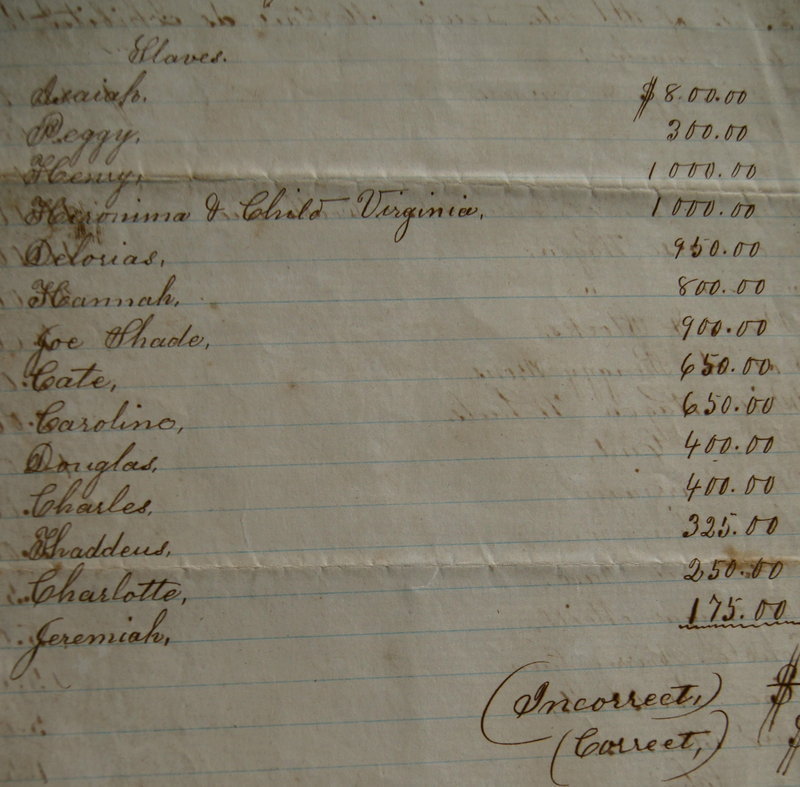 Slaves.
Isaiah, $800.00
Peggy, 300.00
Henry, 1000.00
Heronima & Child Virginia, 1000.00
Delorias, 950.00
Hannah, 800.00
Joe Shade, 900.00
Cate, 650.00
Caroline, 650.00
Douglas, 400.00
Charles, 400.00
Thaddeus, 325.00
Charlotte, 250.00
Jeremiah, 175.00
(Incorrect,) $
(Correct,) $